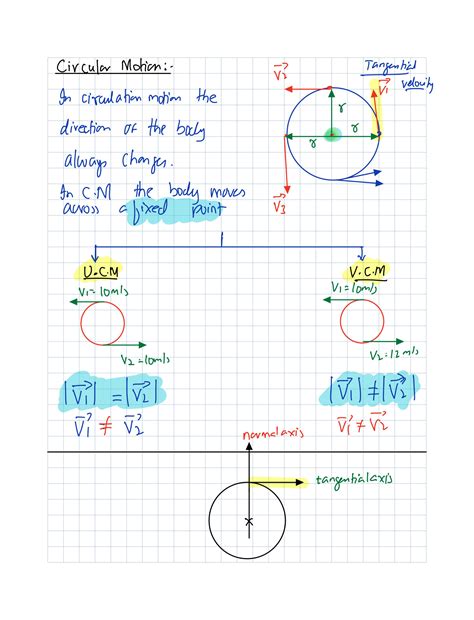 Circular Motion:-
In circulation motion the
direction of the body
always changes.
In C.M the body moves
across a fixed point
V2
Tangential
velocity
V1
r
r
r
V3
U.C.M
V1=10m/s
V2=10m/s
|V1| = |V2|
V1 ≠ V2
V.C.M
V1=10m/s
V2=12m/s
|V1| ≠ |V2|
V1 ≠ V2
normal axis
tangential axis